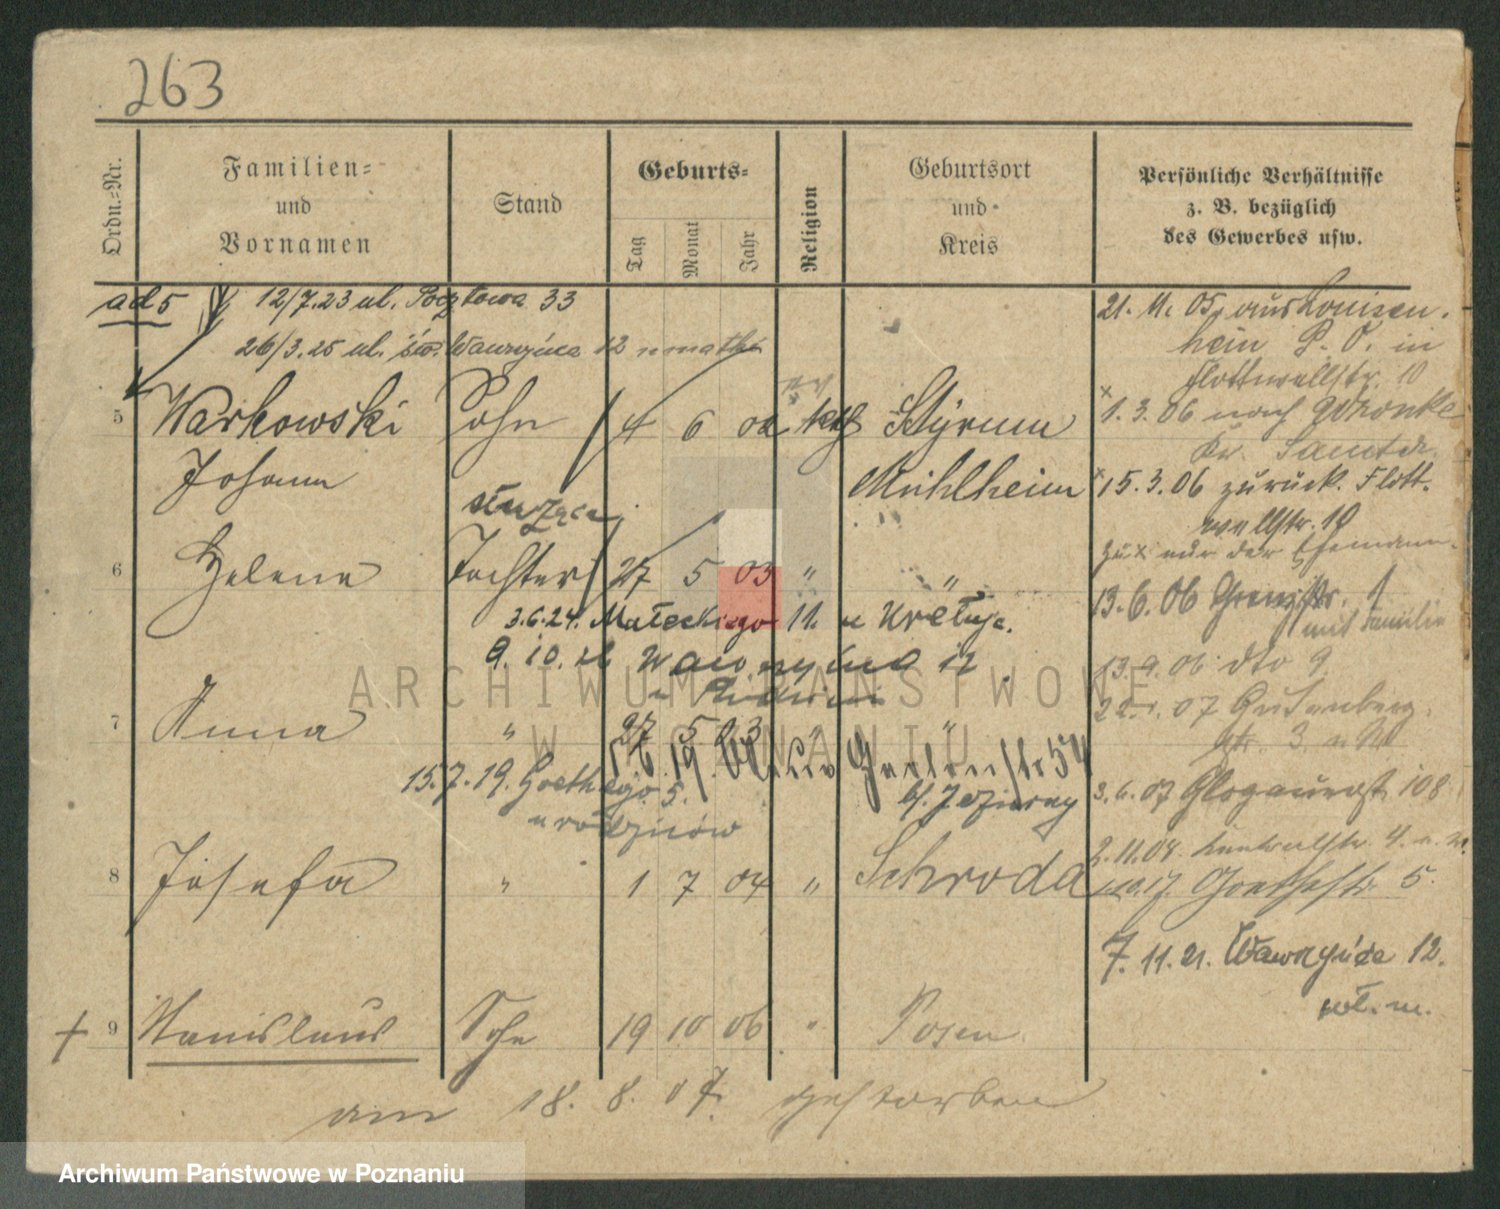 263
Ordn.-Nr.
Familien-
und
Vornamen
Stand
Geburts-
Tag
Monat
Jahr
Religion
Geburtsort
und
Kreis
Persönliche Verhältnisse
z. B. bezüglich
des Gewerbes usw.
ad 5 12/7.23 ul. Pocztowa 33
26/3.25 ul. św. Wawrzyńca 12 u matki
21. 11. 05. aus Louisen-
hein P. O. in
Flottwellstr. 10
5 Warkowski Sohn 4 6 02 kath Styrum
Johann Mühlheim
x 1. 3. 06 nach Wronke
Kr. Samter.
x 15. 3. 06 zurück. Flott-
wellstr. 10
zu x nur der Ehemann.
służąca
6 Helene Tochter 27 5 03 " "
3.6.24. Małeckiego 11. u
9. 10. Wawrzyńca 12
13. 6. 06 1
mit Familie
13. 9. 06 dto 9
7 Anna " 27 5 03 " "
07 Gutenberg-
str. 3.
19. 54
15.7.19. Goethego 5.
u rodziców
b/. Jezierny
3. 6. 07 Glogauerstr 108
8 Josefa " 1 7 04 " Schroda
2. 11. 08. 4.
Goethestr. 5.
7. 11. 21. Wawrzyńca 12.
wł. m.
+ 9 Stanislaus Sohn 19 10 06 " Posen
am 18. 8. 07. gestorben
ARCHIWUM PAŃSTWOWE
W POZNANIU
Archiwum Państwowe w Poznaniu